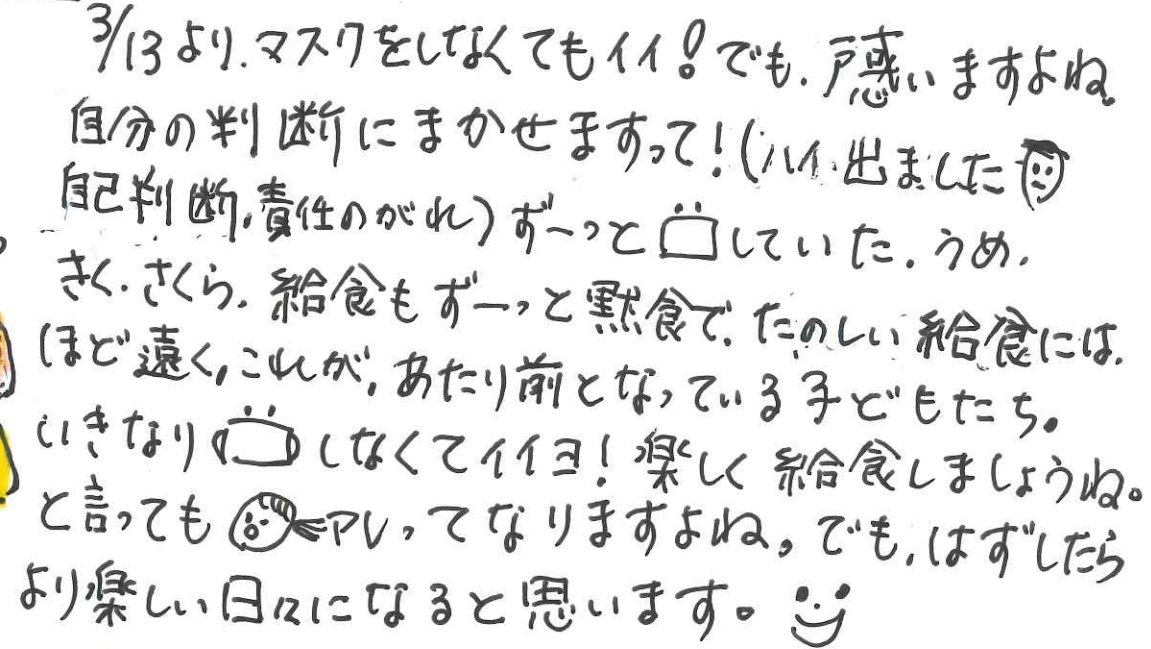 3/13より、マスクをしなくてもイイ!でも、戸惑いますよね。
自分の判断にまかせますって!(ハイ、出ました
自己判断、責任のがれ)ず〜っとしていた、うめ、
きく、さくら、給食もず〜っと黙食で、たのしい給食には、
ほど遠く、これが、あたり前となっている子どもたち。
いきなりしなくてイイヨ!楽しく給食しましょうね。
と言ってもアレってなりますよね。でも、はずしたら
より楽しい日々になると思います。